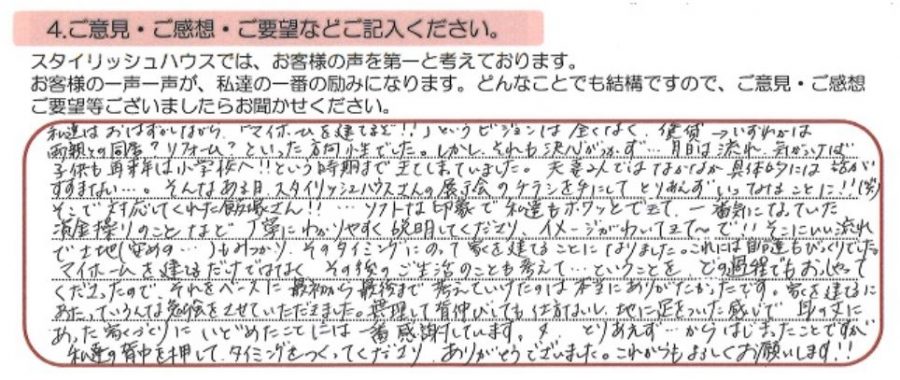 4.ご意見・ご感想・ご要望などご記入ください。
スタイリッシュハウスでは、お客様の声を第一と考えております。
お客様の一声一声が、私達の一番の励みになります。どんなことでも結構ですので、ご意見・ご感想
ご要望等ございましたらお聞かせください。
私達はおはずかしながら、「マイホームを建てるぞ!!」というビジョンは全くなく、賃貸→いずれかは
両親との同居?リフォーム?といった方向性でした。しかし、それも決心がつかず…月日は流れ、気がつけば
子供も再来年は小学校へ!!という時期まで来てしまっていました。夫妻2人ではなかなか具体的には話が
すすまない…。そんなある日、スタイリッシュハウスさんの展示会のチラシを手にして とりあえず いってみることに!!(笑)
そこで対応してくれた飯塚さん!!…ソフトな印象で私達もホワッとできて、一番気になっていた
資金繰りのことなど丁寧にわかりやすく説明してくださり、イメージがわいてきて〜で!!そこにいい流れ
で土地(安めの…)もみつかり、そのタイミングにのって家を建てることになりました。これには自分達もびっくりでした。
マイホームを建てるだけではなく、その後のご生活のことも考えて…ということを、どの過程でもおっしゃって
くださったので、それをベースに最初から最後まで考えていけたのは本当にありがたかったです。家を建てるに
あたっていろんな勉強をさせていただきました。無理して背伸びしても仕方ないし、地に足をついた感じで、身の丈に
あった家づくりに いどめたことには一番感謝しています。 とりあえず…からはじまったことですが
私達の背中を押して、タイミングをつくってくださり、ありがとうございました。これからもよろしくお願いします!!